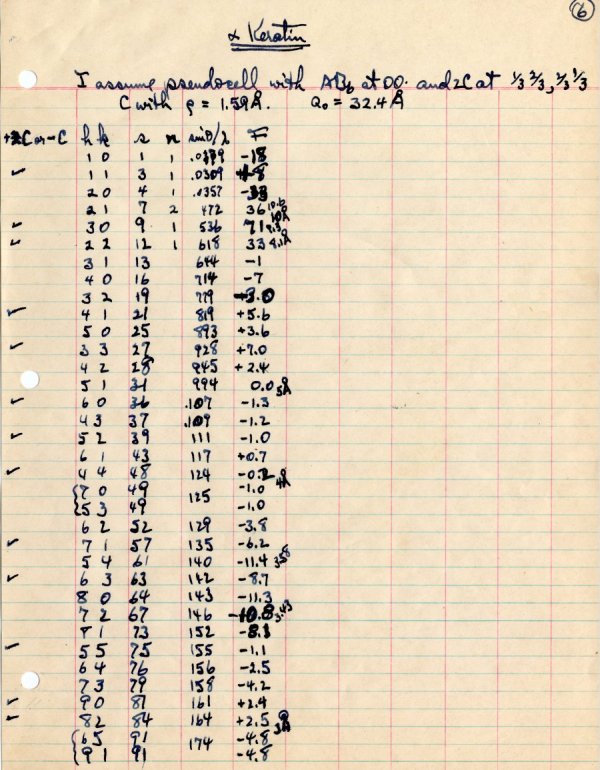 6
α Keratin
I assume pseudocell with AB6 at 00. and 2C at 1/3 2/3, 2/3 1/3
C with ρ = 1.59Å. a0 = 32.4 Å
C or -C h k s n sinθ/λ F
1 0 1 1 -18
✓ 1 1 3 1 .0309 +8
2 0 4 1 .0357
2 1 7 2 472 36 10.6 10Å
✓ 3 0 9 1 536 71 9.3
✓ 2 2 12 1 618 33 8.1Å
3 1 13 644 -1
4 0 16 714 -7
3 2 19 779 +3.0
✓ 4 1 21 819 +5.6
5 0 25 893 +3.6
✓ 3 3 27 928 +7.0
4 2 28 945 +2.4
5 1 31 994 0.0 5Å
✓ 6 0 36 .107 -1.3
4 3 37 .109 -1.2
✓ 5 2 39 111 -1.0
6 1 43 117 +0.7
✓ 4 4 48 124 -0.2 4Å
{7 0 49 125 -1.0
{5 3 49 -1.0
6 2 52 129 -3.8
✓ 7 1 57 135 -6.2
5 4 61 140 -11.4 3.58
✓ 6 3 63 142 -8.7
8 0 64 143 -11.3
7 2 67 146 -10.8 3.43
8 1 73 152 -8.1
✓ 5 5 75 155 -1.1
6 4 76 156 -2.5
7 3 79 158 -4.2
✓ 9 0 81 161 +2.4
✓ 8 2 84 164 +2.5 3Å
{6 5 91 174 -4.8
{9 1 91 -4.8